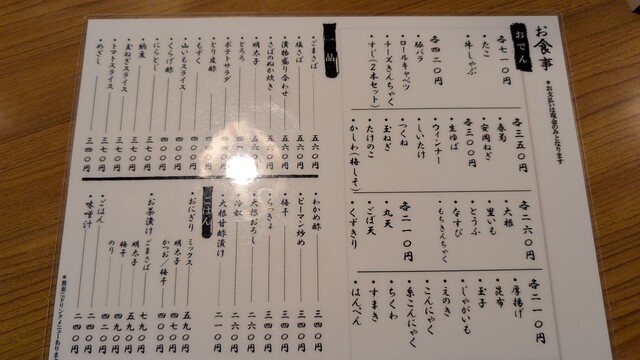 お食事
*お支払いは現金のみとなります
おでん
各七一〇円
・たこ
・牛しゃぶ
各四二〇円
・豚バラ
・ロールキャベツ
・チーズきんちゃく
・すじ(2本セット)
各三五〇円
・春菊
・安岡ねぎ
各三〇〇円
・生ゆば
・ウィンナー
・しいたけ
・つくね
・玉ねぎ
・たけのこ
・かしわ(梅しそ)
各二六〇円
・大根
・里いも
・とうふ
・なすび
・もちきんちゃく
各二一〇円
・丸天
・ごぼ天
・くずきり
各二一〇円
・厚揚げ
・昆布
・玉子
・じゃがいも
・えのき
・こんにゃく
・糸こんにゃく
・ちくわ
・すまき
・はんぺん
一品
・ごまさば 五六〇円
・塩さば 五六〇円
・漬物盛り合わせ 五六〇円
・さばのぬか炊き 五六〇円
・明太子
・とろろ
・ポテトサラダ
・とり皮酢
・もずく 四〇〇円
・山いもスライス 四〇〇円
・くらげ酢 四〇〇円
・にらとじ 三七〇円
・納豆 三七〇円
・玉ねぎスライス 三七〇円
・トマトスライス 三七〇円
・めざし 三四〇円
・わかめ酢 三四〇円
・ピーマン炒め 三四〇円
・梅干 三四〇円
・らっきょ 三四〇円
・大根おろし 二六〇円
・冷奴 二六〇円
・大根甘酢漬け 二一〇円
ごはん
・おにぎり ミックス 五九〇円
明太子 四七〇円
かつお/梅干 四〇〇円
・お茶漬け ごまさば 七九〇円
明太子 五九〇円
梅干 四九〇円
のり 四九〇円
・ごはん 二四〇円
・味噌汁 二四〇円
*裏面にドリンクメニューあります